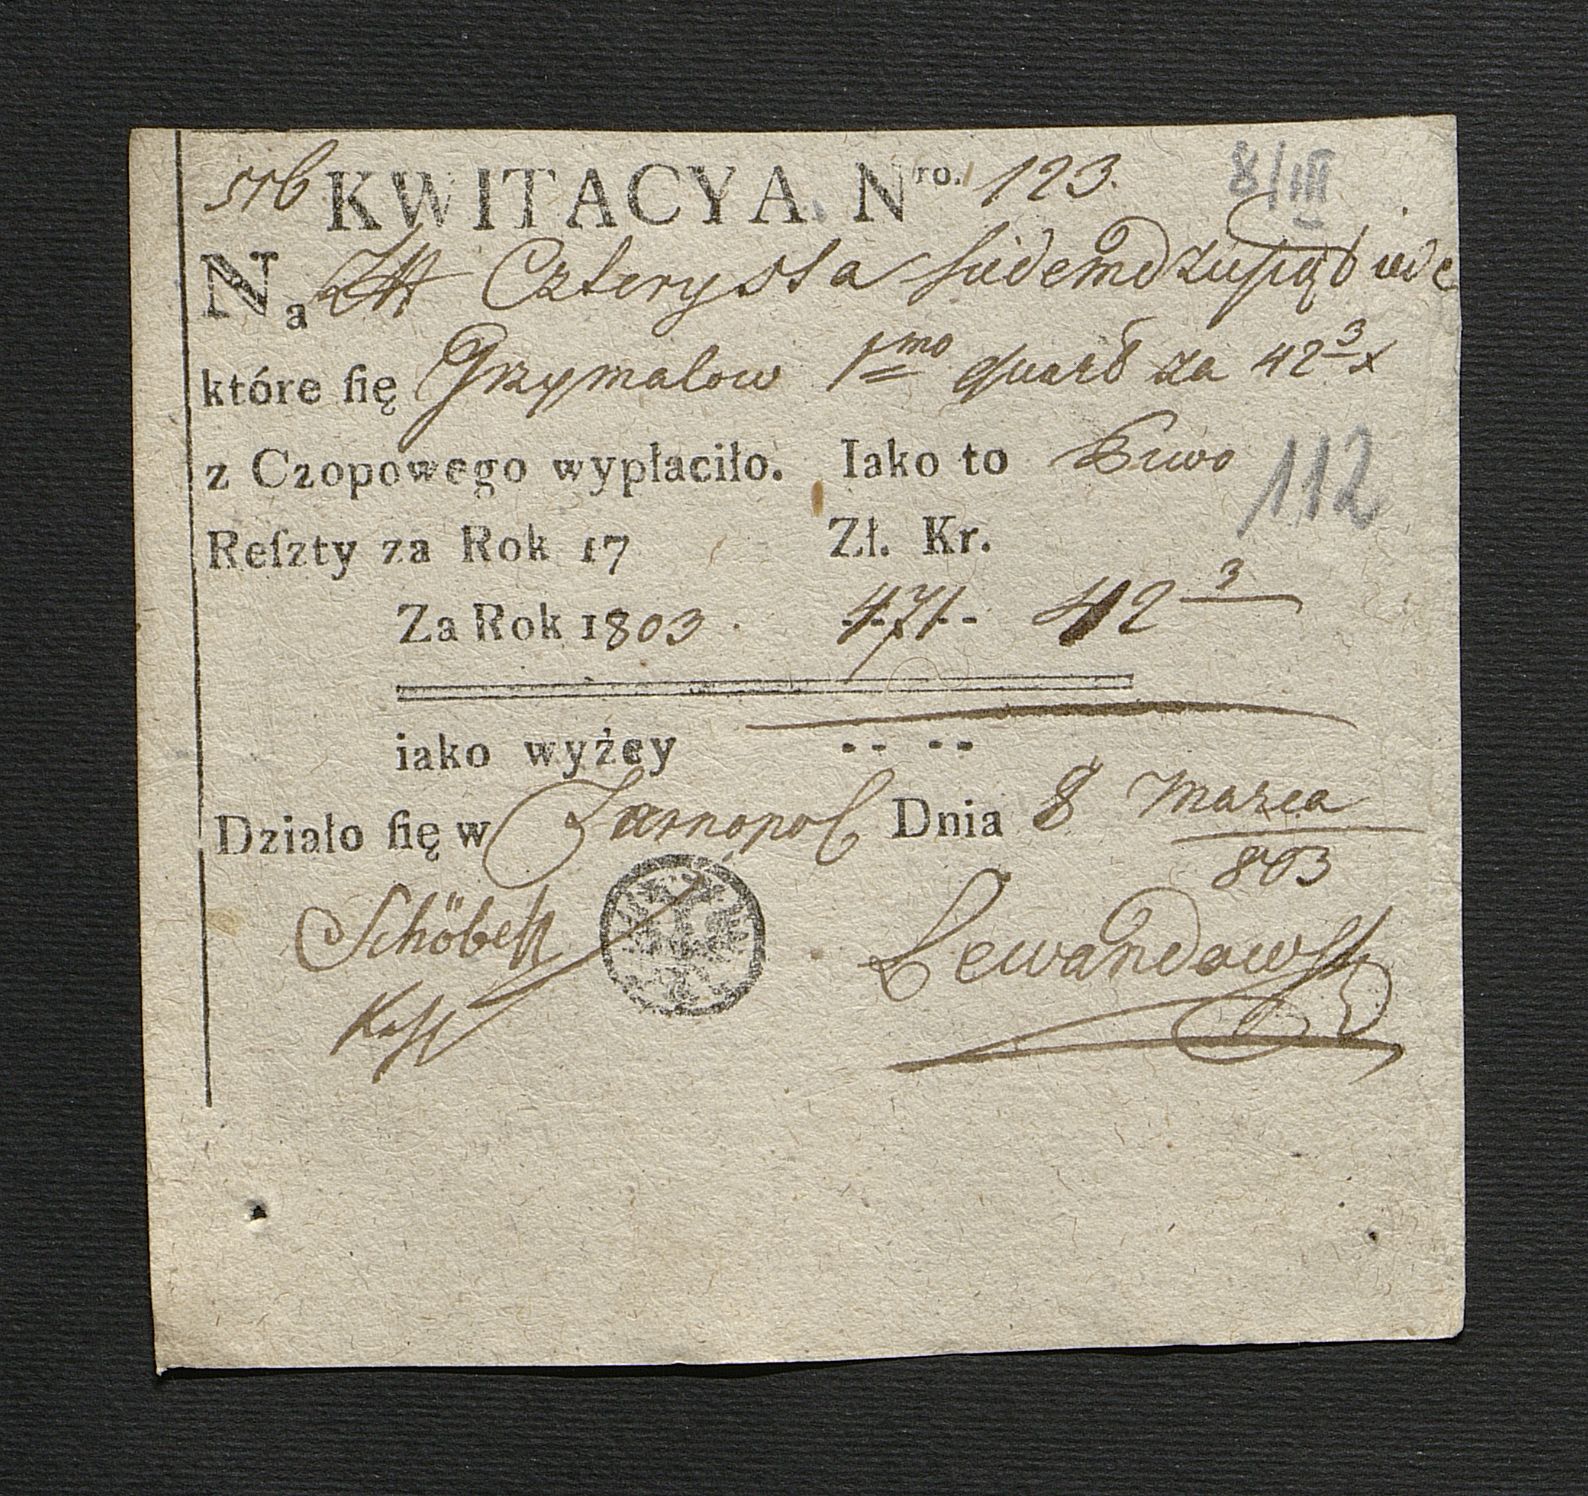 KWITACYA Nro. 123. 8/III
Na Czterysta siedemdziesiąt iede
które ſię Grzymalow 1mo quart za 42 3 x
z Czopowego wypłaciło. Iako to Piwo 112
Reſzty za Rok 17 Zł. Kr.
Za Rok 1803. 471 42 3
iako wyżey
Działo ſię w Tarnopol Dnia 8 Marca
803
Schöbelt Lewandowsk